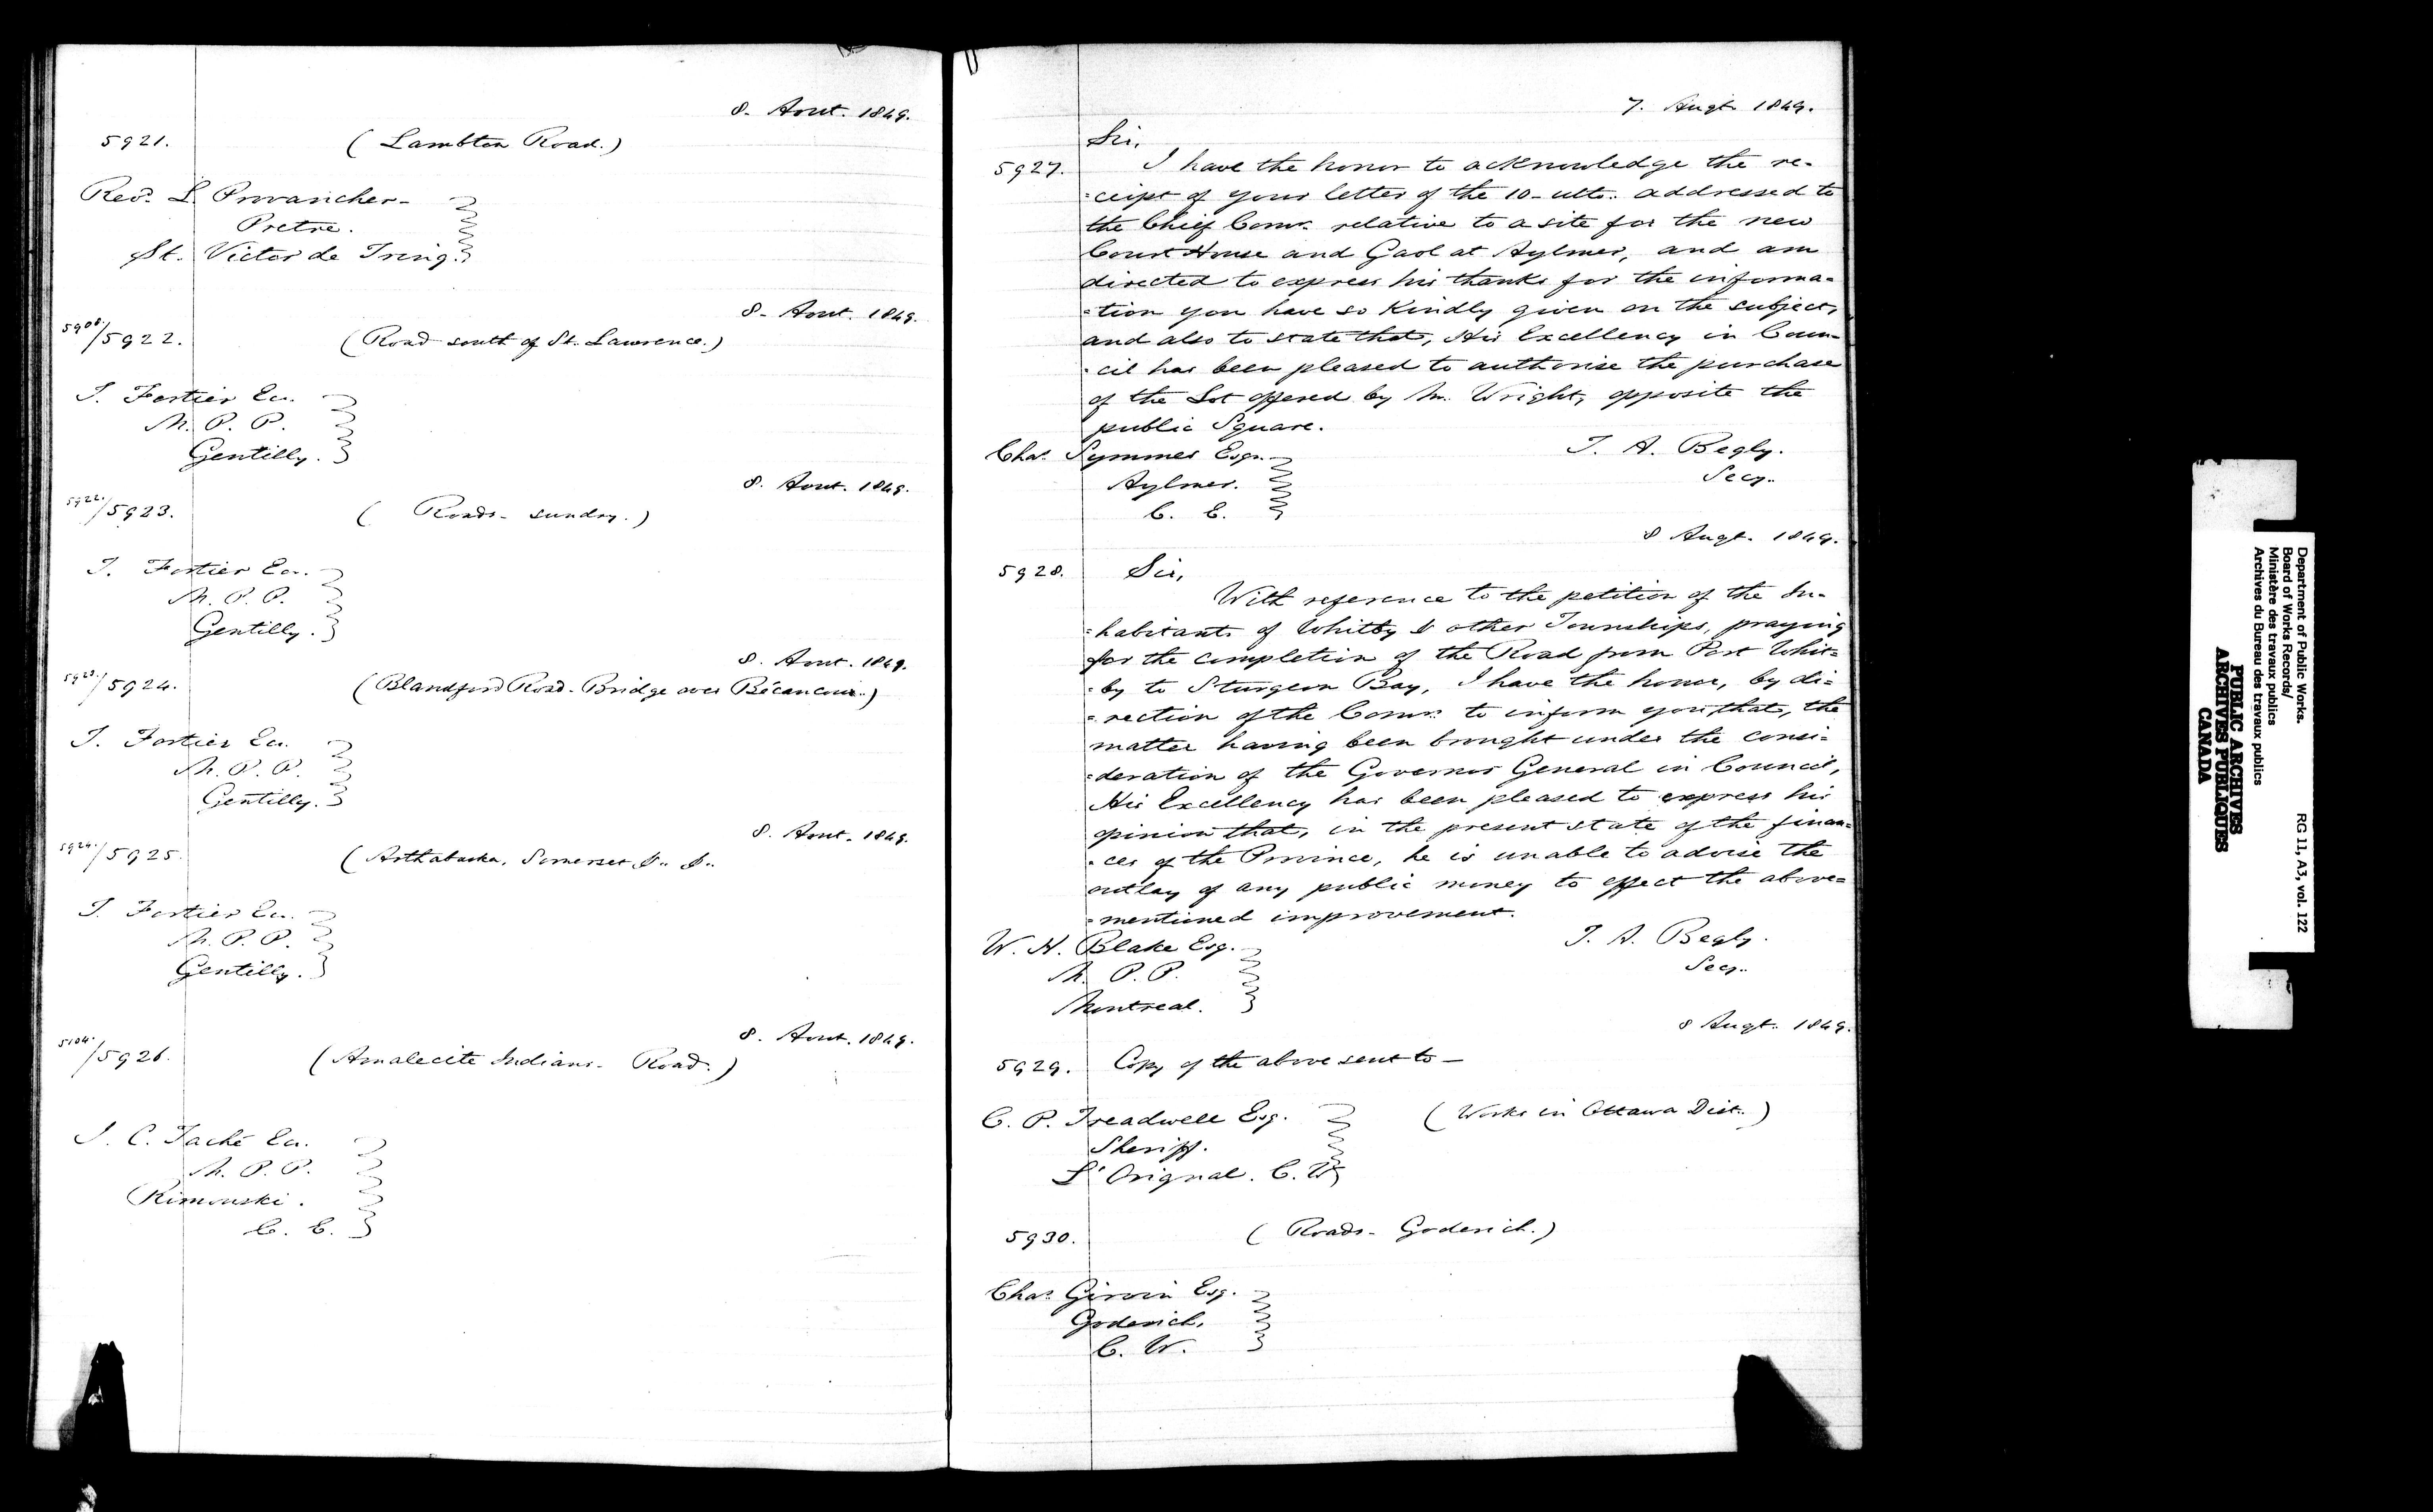 8- Aout. 1849.
5921. (Lambton Road.)
Revd. L. Provancher-
Pretre.
St. Victor de Tring.
8- Aout. 1849.
5908./5922. (Road south of St. Lawrence.)
T. Fortier Ecr.
M. P. P.
Gentilly.
8. Aout. 1849.
5922./5923. ( Roads- sundry.)
T. Fortier Ecr.
M. P. P.
Gentilly.
8. Aout. 1849.
5923./5924. (Blandford Road- Bridge over Bécancour.)
T. Fortier Ecr.
M. P. P.
Gentilly.
8. Aout. 1849.
5924./5925. (Arthabaska, Somerset &. &.
T. Fortier Ecr.
M. P. P.
Gentilly.
8. Aout. 1849.
5104./5926. (Amalecite Indians- Road.)
J. C. Taché Ecr.
M. P. P.
Rimouski.
C. E.
7. Augt. 1849.
Sir,
5927. I have the honor to acknowledge the re-
-ceipt of your letter of the 10- ulto. addressed to
the Chief Comr. relative to a site for the new
Court House and Gaol at Aylmer, and am
directed to express his thanks for the informa-
-tion you have so kindly given on the subject,
and also to state that, His Excellency in Coun-
-cil has been pleased to authorise the purchase
of the Lot offered by Mr. Wright, opposite the
public Square.
T. A. Begly.
Secy.
Chas. Symmes Esqr.
Aylmer.
C. E.
8 Augt. 1849.
5928. Sir,
With reference to the petition of the In-
=habitants of Whitby & other Townships, praying
for the completion of the Road from Port Whit=
-by to Sturgeon Bay, I have the honor, by di=
=rection of the Comrs. to inform you that, the
matter having been brought under the consi=
=deration of the Governor General in Council,
His Excellency has been pleased to express his
opinion that, in the present state of the finan=
-ces of the Province, he is unable to advise the
outlay of any public money to effect the above=
=mentioned improvement.
T. A. Begly.
Secy.
W. H. Blake Esq.
M. P. P.
Montreal.
8 Augt. 1849.
5929. Copy of the above sent to —
C. P. Treadwell Esq. (Works in Ottawa Dist.)
Sheriff.
L'Orignal. C. W.
5930. ( Roads- Goderich.)
Chas. Girvin Esq.
Goderich,
C. W.
Department of Public Works. RG 11, A3, vol. 122
Board of Works Records/
Ministère des travaux publics
Archives du Bureau des travaux publics
PUBLIC ARCHIVES
ARCHIVES PUBLIQUES
CANADA